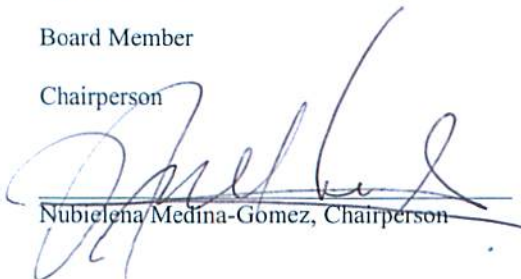 Board Member
Chairperson
Nubielena Medina-Gomez, Chairperson